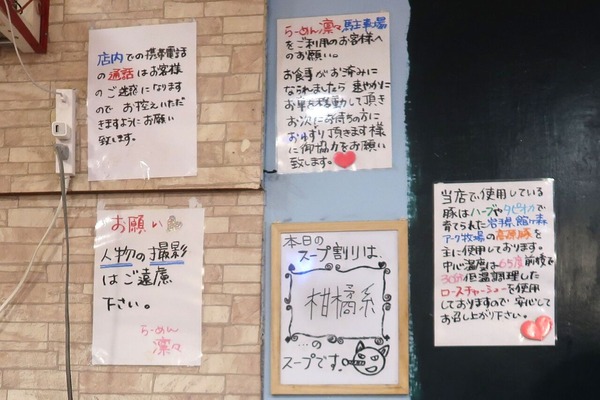 店内での携帯電話
の通話はお客様
のご迷惑になります
ので お控えいただ
きますようにお願い
致します。
お願い
人物の撮影
はご遠慮
下さい。
らーめん
凛々
らーめん凛々駐車場
をご利用のお客様へ
のお願い。
お食事がお済みに
なられましたら 速やかに
お車を移動して頂き
お次にお待ちの方に
おゆずり頂きます様
に御協力をお願い
致します。
本日の
スープ割りは、
柑橘系
…の
スープです。
当店で使用している
豚はハーブやタピオカで
育てられた岩手県館ヶ森
アーク牧場の高原豚を
主に使用しております。
中心温度は65度前後で
30分低温調理した
ロースチャーシューを使用
しておりますので 安心して
お召し上がり下さい。